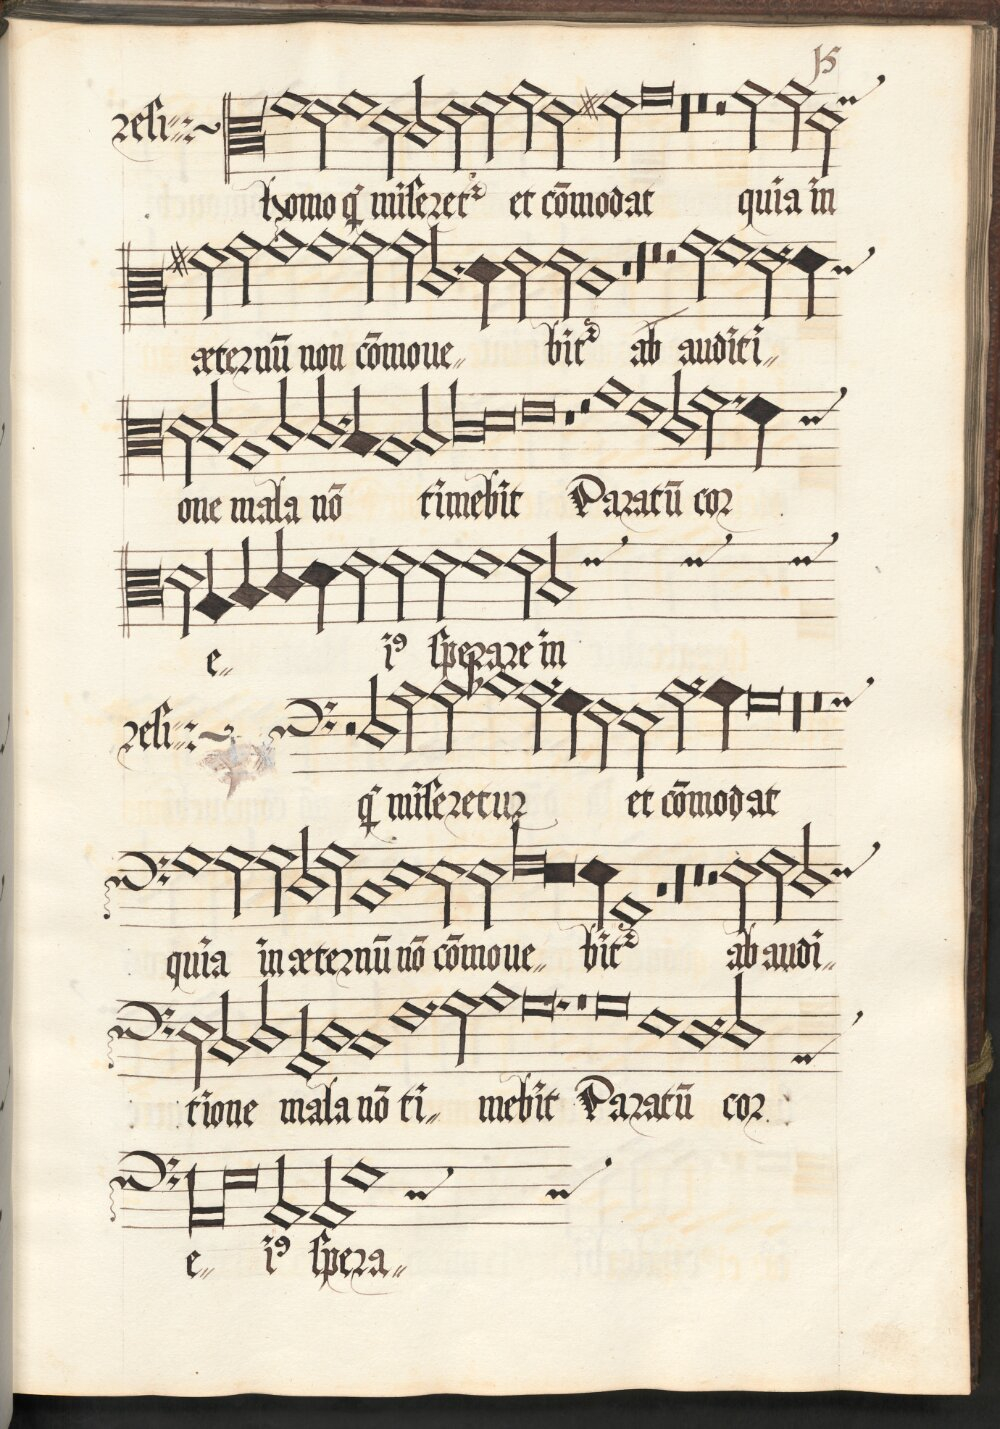 15
resi:::~
homo q̄ miseret᷑ et cōmodat quia in
æternū non cōmoue„ bit᷑ ab auditi„
one mala nō timebit Paratū cor
e„ i⁹ sperare in
resi:::~
q̄ miseretur et cōmodat
quia in æternū nō cōmoue„ bit᷑ ab audi„
tione mala nō ti„ mebit Paratū cor
e„ i⁹ spera„